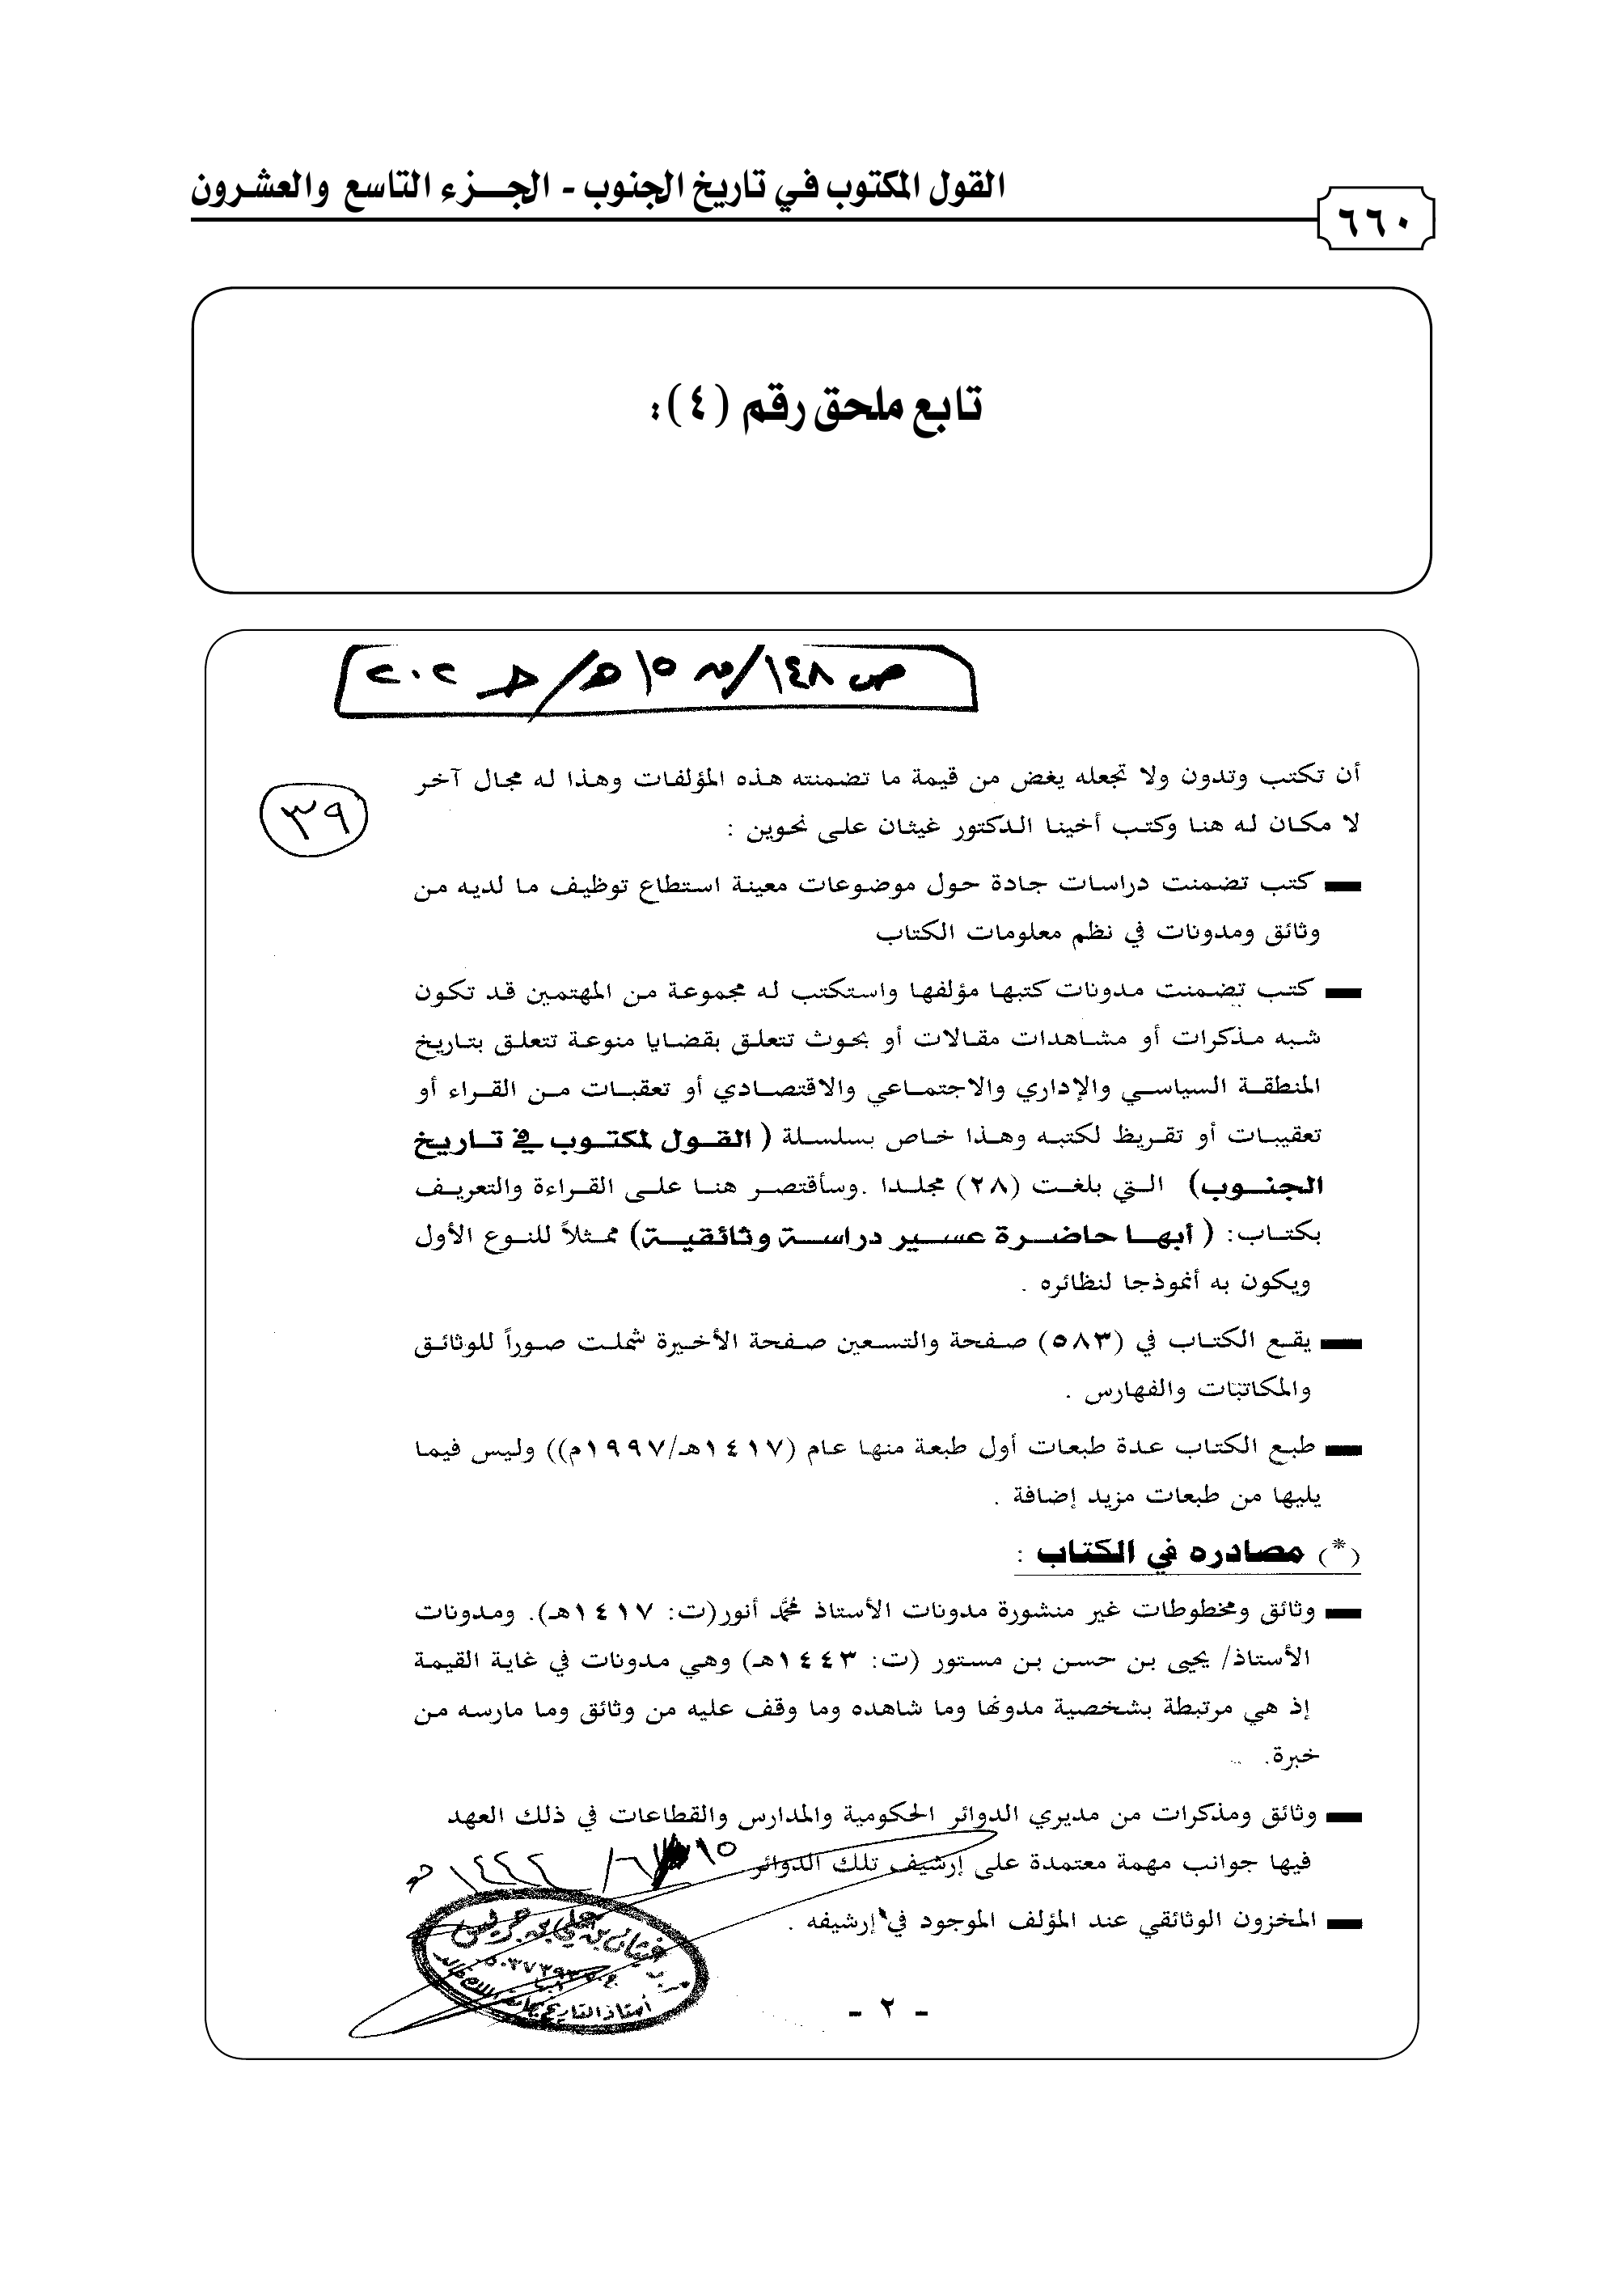 القول المكتوب في تاريخ الجنوب - الجزء التاسع والعشرون
٦٦٠
تابع ملحق رقم (٤):
ص ١٤٨/
٣٩
أن تكتب وتدون ولا تجعله يغض من قيمة ما تضمنته هذه المؤلفات وهذا له مجال آخر
لا مكان له هنا وكتب أخينا الدكتور غيثان على نحوين :
كتب تضمنت دراسات جادة حول موضوعات معينة استطاع توظيف ما لديه من
وثائق ومدونات في نظم معلومات الكتاب
كتب تضمنت مدونات كتبها مؤلفها واستكتب له مجموعة من المهتمين قد تكون
شبه مذكرات أو مشاهدات مقالات أو بحوث تتعلق بقضايا منوعة تتعلق بتاريخ
المنطقة السياسي والإداري والاجتماعي والاقتصادي أو تعقبات من القراء أو
تعقيبات أو تقريظ لكتبه وهذا خاص بسلسلة ( القول لمكتوب في تاريخ
الجنوب) التي بلغت (٢٨) مجلدا .وسأقتصر هنا على القراءة والتعريف
بكتاب: ( أبها حاضرة عسير دراسة وثائقية) ممثلاً للنوع الأول
ويكون به أنموذجا لنظائره .
يقع الكتاب في (٥٨٣) صفحة والتسعين صفحة الأخيرة شملت صوراً للوثائق
والمكاتبات والفهارس .
طبع الكتاب عدة طبعات أول طبعة منها عام (١٤١٧هـ/١٩٩٧م)) وليس فيما
يليها من طبعات مزيد إضافة .
(*) مصادره في الكتاب :
وثائق ومخطوطات غير منشورة مدونات الأستاذ محمَّد أنور(ت: ١٤١٧هـ). ومدونات
الأستاذ/ يحيى بن حسن بن مستور (ت: ١٤٤٣هـ) وهي مدونات في غاية القيمة
إذ هي مرتبطة بشخصية مدونها وما شاهده وما وقف عليه من وثائق وما مارسه من
خبرة.
وثائق ومذكرات من مديري الدوائر الحكومية والمدارس والقطاعات في ذلك العهد
فيها جوانب مهمة معتمدة على إرشيف تلك الدوائر
المخزون الوثائقي عند المؤلف الموجود في إرشيفه .
غيثان بن علي بن جريس
أستاذ التاريخ
- ٢ -